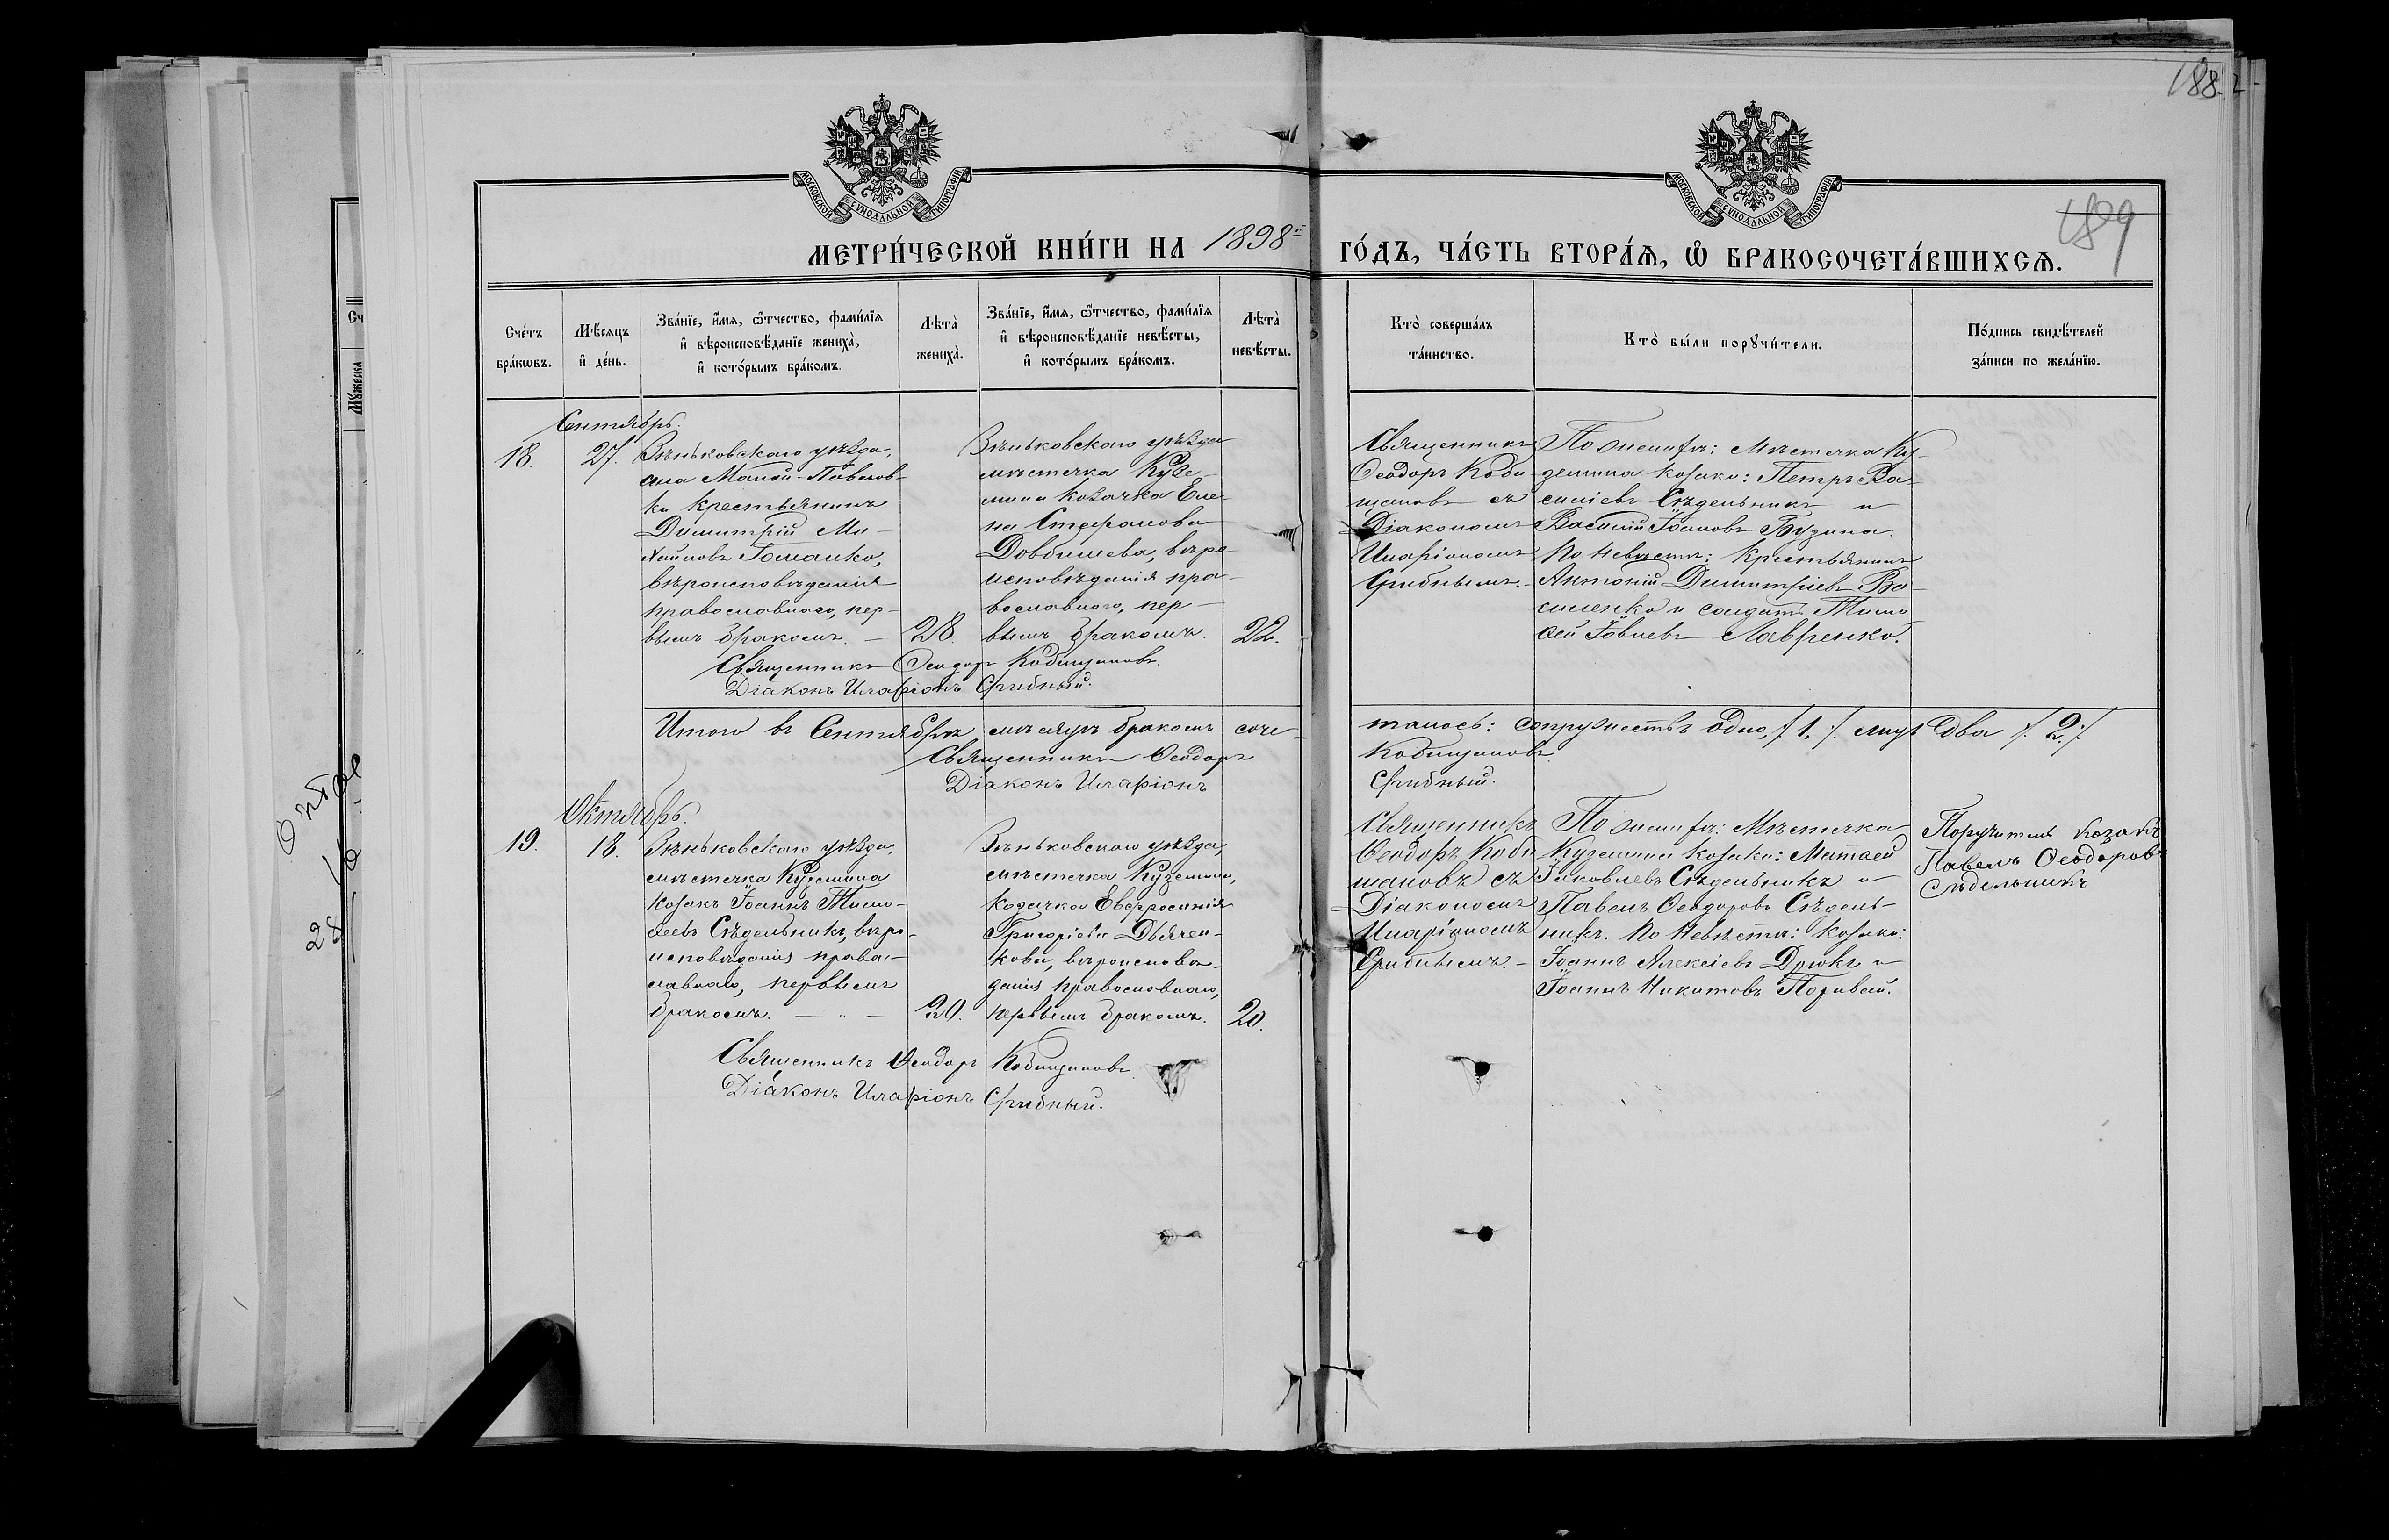 188.
189
МОСКОВСКОЙ СѴНОДАЛЬНОЙ ТИПОГРАФІИ
МОСКОВСКОЙ СѴНОДАЛЬНОЙ ТИПОГРАФІИ
МЕТРИ́ЧЕСКОЙ КНИ́ГИ НА 1898й ГО́ДЪ, ЧА́СТЬ ВТОРА́Ѧ, Ѡ҆ БРАКОСОЧЕТА́ВШИХСѦ.
Сче́тъ бра́кѡвъ.
Мѣ́сѧцъ и҆ де́нь.
Зва́нїе, и҆́мѧ, ѻ҆́тчество, фами́лїѧ
и҆ вѣроисповѣ́данїе жениха̀,
и҆ кото́рымъ бра́комъ.
Лѣта̀ жениха̀.
Зва́нїе, и҆́мѧ, ѻ҆́тчество, фами́лїѧ
и҆ вѣроисповѣ́данїе невѣ́сты,
и҆ кото́рымъ бра́комъ.
Лѣта̀ невѣ́сты.
Кто̀ соверша́лъ та́инство.
Кто̀ бы́ли порꙋчи́тели.
По́дпись свидѣ́телей
за́писи по жела́нїю.
Сентябрь.
18.
27.
Зѣньковскаго уѣзда,
села Малой-Павлов-
ки крестьянинъ
Димитрій Ми-
хайловъ Гоманко,
вѣроисповѣданія
православнаго, пер-
вымъ бракомъ. —
28.
Зѣньковскаго уѣзда
мѣстечка Кузе-
мина козачка Еле-
на Стефанова
Довбишева, вѣро-
исповѣданія пра-
вославнаго, пер-
вымъ бракомъ.
22.
Священникъ
Ѳеодоръ Коби-
щановъ съ
Діакономъ
Иларіономъ
Грибнымъ.
По женихѣ: Мѣстечка Ку-
земина козаки: Петръ Ва-
силіевъ Сѣдельникъ и
Василій Іоановъ Бузина.
По невѣстѣ: Крестьянинъ
Антоній Димитріевъ Ва-
силенко и солдатъ Тимо-
ѳей Іовлевъ Лавренко.
Священникъ Ѳеодоръ Кобищановъ.
Діаконъ Иларіонъ Грибный.
Итого въ Сентябрѣ мѣсяцѣ бракомъ соче-
талось: супружествъ одно, /.1./. лицъ два /.2./.
Священникъ Ѳеодоръ Кобищановъ
Діаконъ Иларіонъ Грибный.
Октябрь.
19.
18.
Зѣньковскаго уѣзда,
мѣстечка Куземина
козакъ Іоаннъ Тимо-
ѳеевъ Сѣдельникъ, вѣро-
исповѣданія право-
славнаго, первымъ
бракомъ. — " —
20.
Зѣньковскаго уѣзда,
мѣстечка Куземина,
козачка Евфросинія
Григоріева Дьячен-
кова, вѣроисповѣ-
данія православнаго,
первымъ бракомъ.
20.
Священникъ
Ѳеодоръ Коби-
щановъ съ
Діакономъ
Иларіономъ
Грибнымъ. —
По женихѣ: Мѣстечка
Куземина козаки: Матѳей
Іаковлевъ Сѣдельникъ и
Павелъ Ѳеодоровъ Сѣдель-
никъ. По невѣстѣ: козаки:
Іоаннъ Алексіевъ Дрюкъ и
Іоаннъ Никитовъ Поривай.
Поручитель козакъ
Павелъ Ѳеодоровъ
Сѣдельникъ
Священникъ Ѳеодоръ Кобищановъ.
Діаконъ Иларіонъ Грибный.